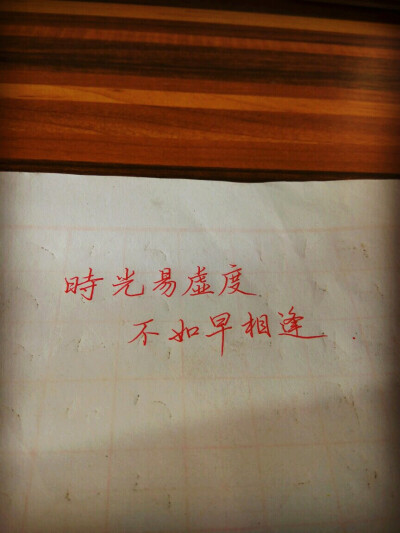 時光易虛度
不如早相逢